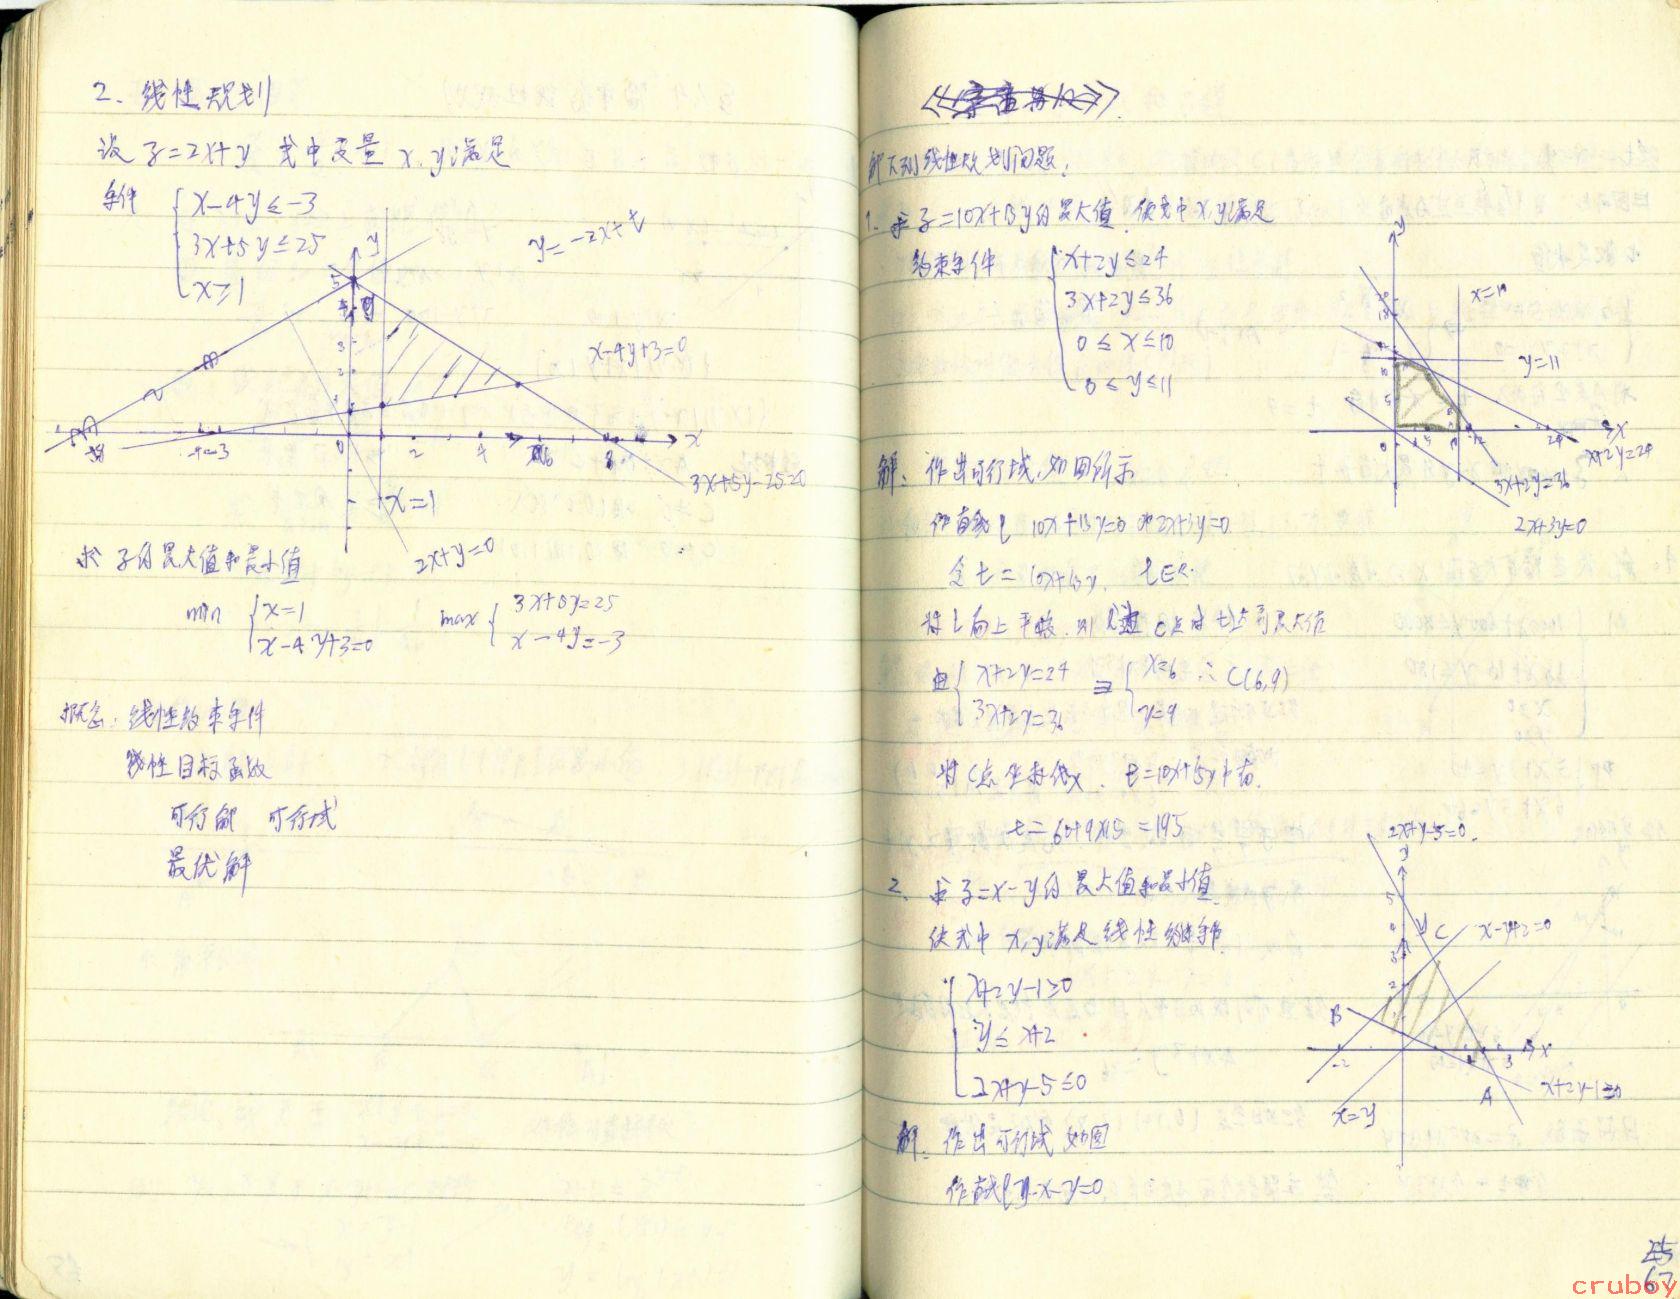 2. 线性规划
设 z=2x+y 式中变量 x、y满足
条件 { x-4y≤-3
3x+5y≤25
x≥1
y=-2x+t
y
5
3
2
x-4y+3=0
-3
0
2
4
6
8
x
3x+5y-25=0
x=1
2x+y=0
求 z的最大值和最小值
min { x=1
x-4y+3=0
max { 3x+5y=25
x-4y=-3
概念: 线性约束条件
线性目标函数
可行解 可行域
最优解
解下列线性规划问题:
1. 求z=10x+15y的最大值, 使式中x,y满足
约束条件 { x+2y≤24
3x+2y≤36
0≤x≤10
0≤y≤11
y
x=10
y=11
0
12
24
x
x+2y=24
3x+2y=36
2x+3y=0
解: 作出可行域, 如图所示
作直线l 10x+15y=0 即2x+3y=0
令t=10x+15y, t∈R.
将l向上平移, 则 C点时t有最大值
由 { x+2y=24
3x+2y=36
⇒ { x=6
y=9
∴ C(6,9)
将C点坐标代入, t=10x+15y中有.
t=60+9×15=195
2x+y-5=0.
2. 求z=x-y的最大值和最小值,
使式中 x,y满足线性约束条件.
{ x+2y-1≥0
y≤x+2
2x+y-5≤0
y
5
4
3
2
C
x-y+2=0
B
-2
3
x
A
x+2y-1=0
x=y
解: 作出可行域 如图
作直线l x-y=0
67
cruboy